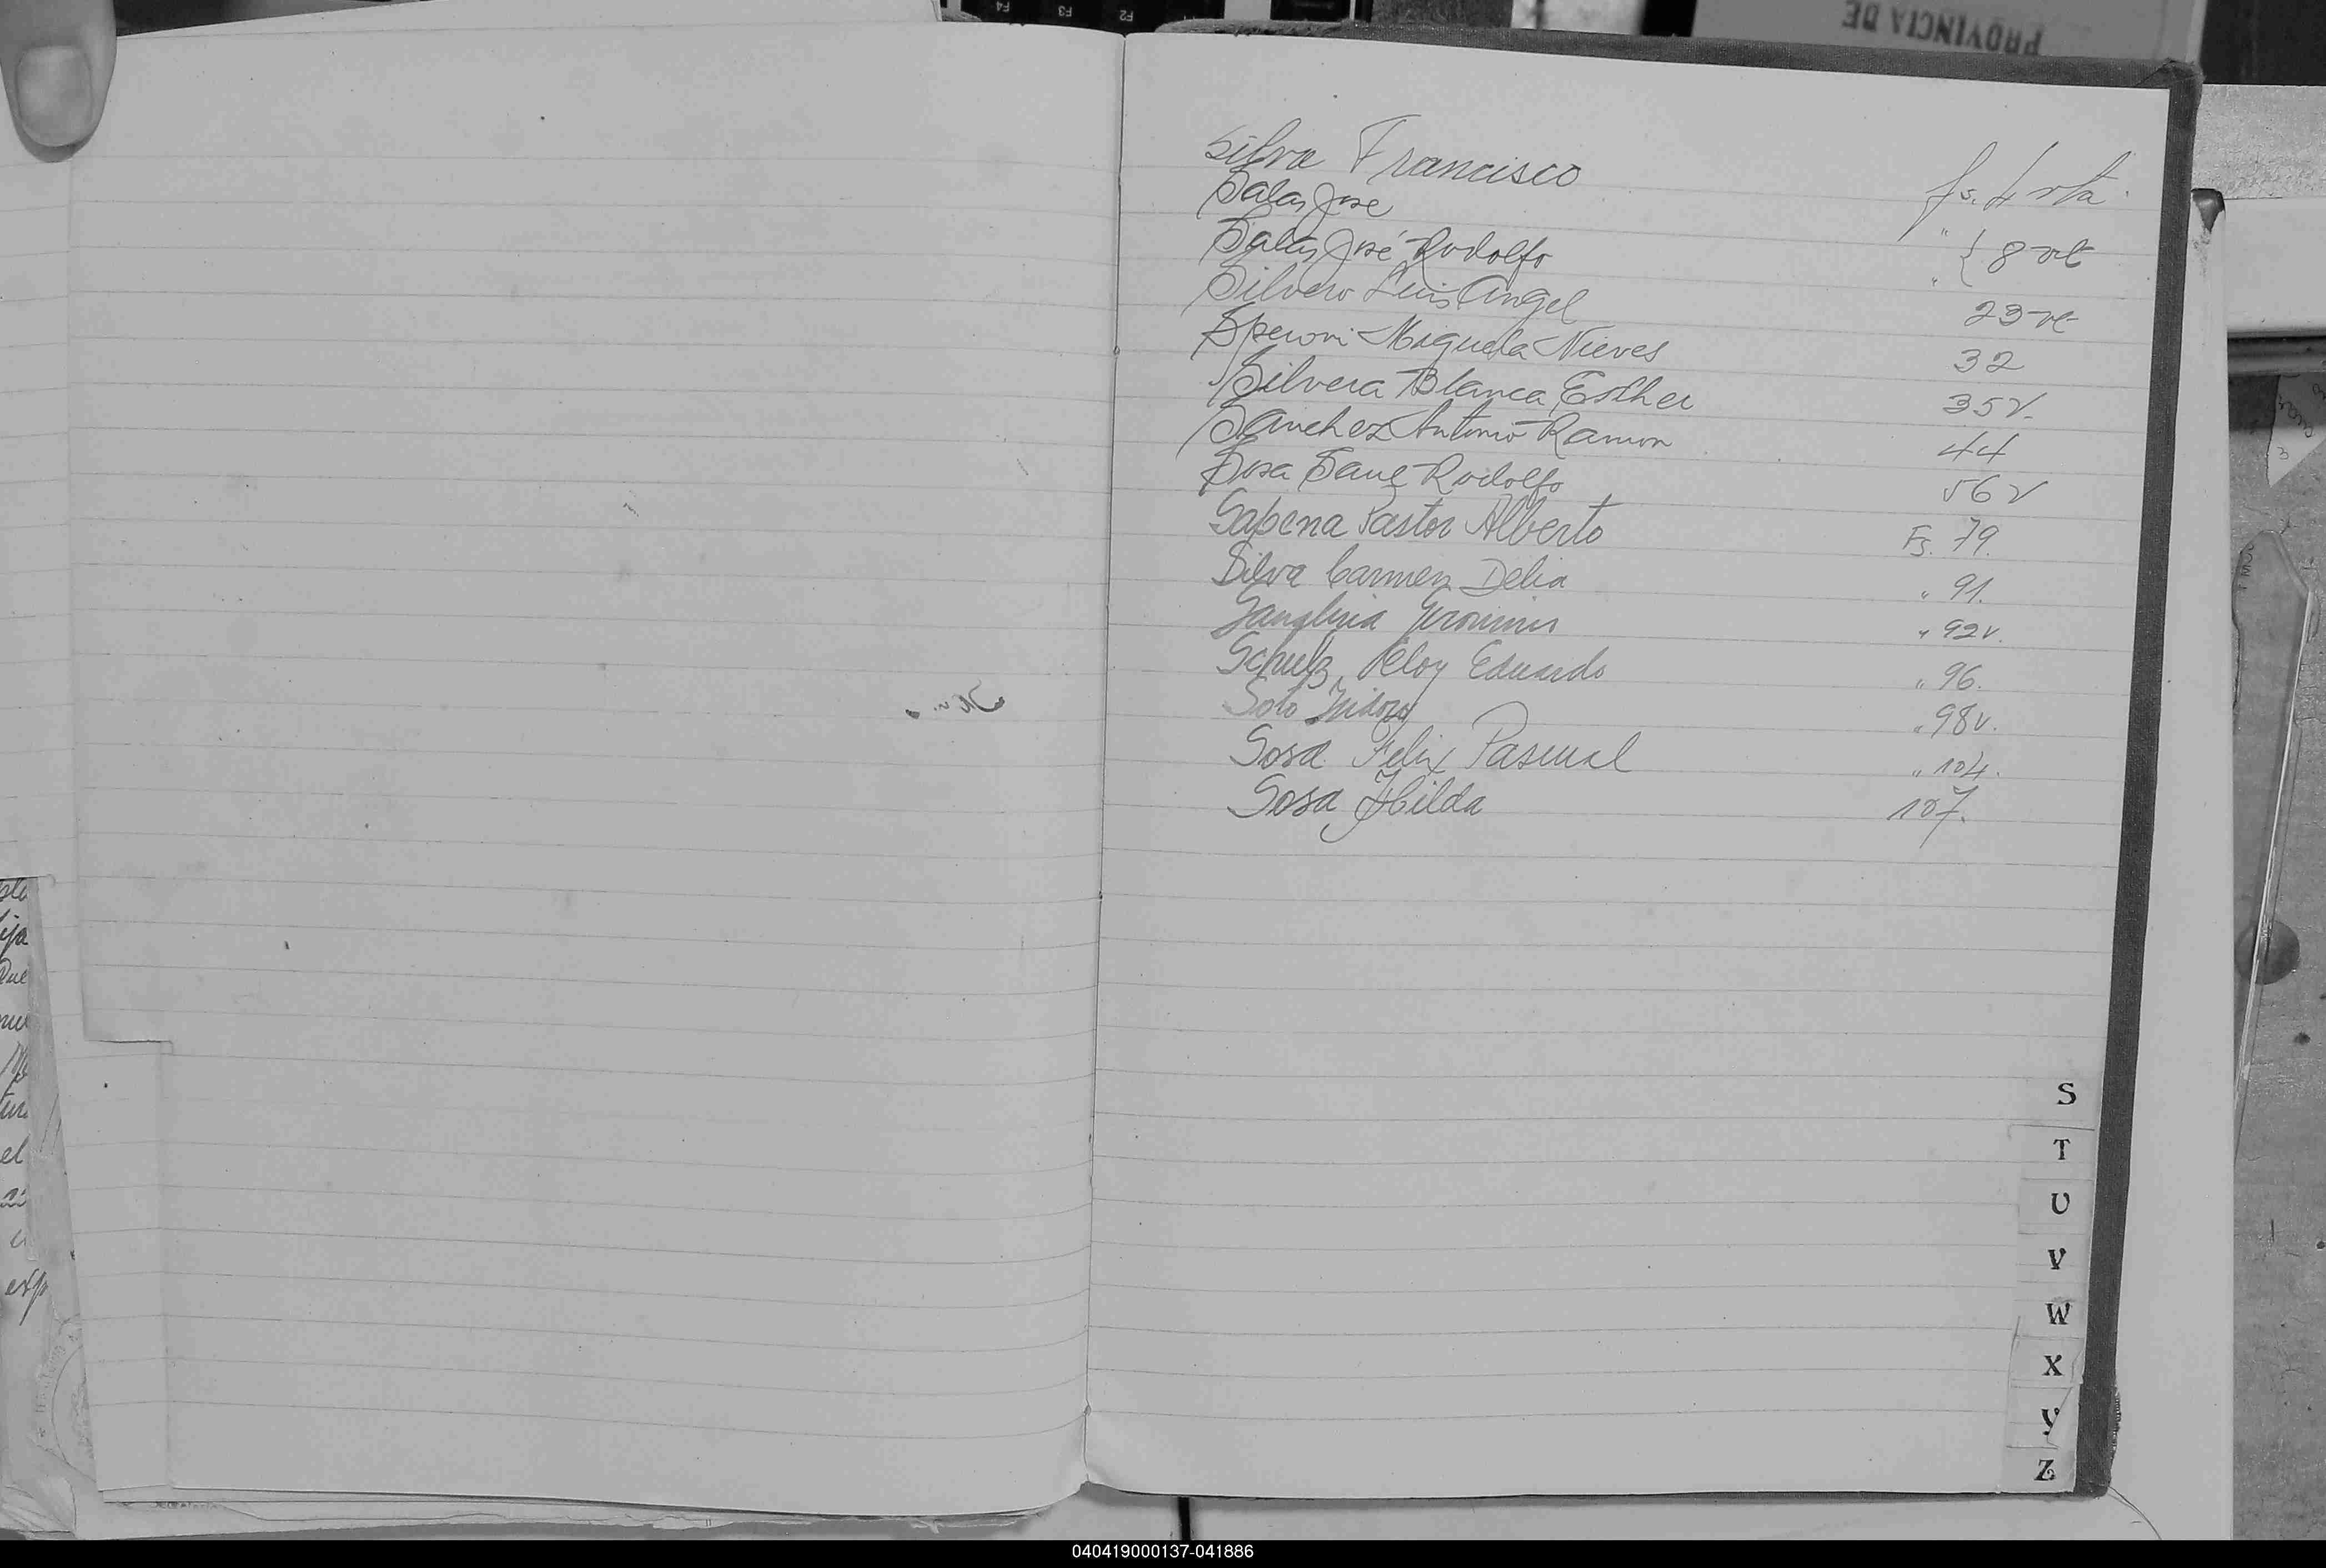 Silva Francisco fs. 4 vta.
Salas José " { 8 vt
Salas José Rodolfo "
Silvero Luis Angel 23 vt
Speroni Miguela Nieves 32
Silvera Blanca Esther 35 v.
Sanchez Antonio Ramon 44
Sosa Saul Rodolfo 56 v
Sapena Pastor Alberto Fs. 79.
Silva Carmen Delia " 91.
" 92 v.
Schulz, Eloy Eduardo " 96.
Soto Isidoro " 98 v.
Sosa Felix Pascual " 104.
Sosa Hilda 107.
S
T
U
V
W
X
Y
Z
PROVINCIA DE
F4 F3 F2
040419000137-041886